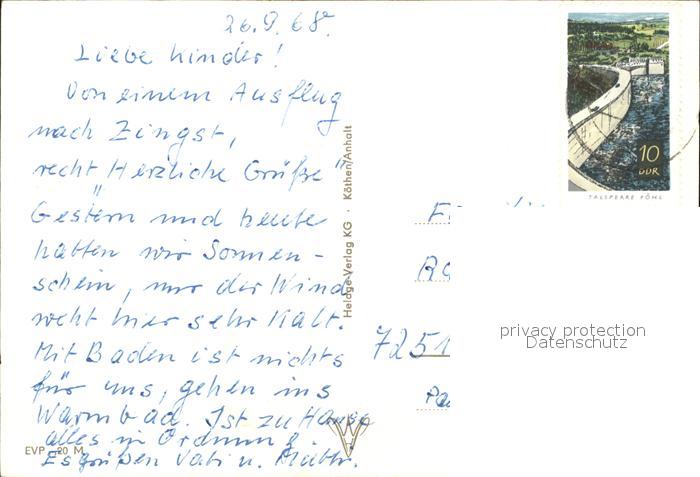 26.9.68.
Liebe Kinder!
Von einem Ausflug
nach Zingst,
recht "Herzliche Grüße"
Gestern und heute
hatten wir Sonnen-
schein, nur der Wind
weht hier sehr kalt.
Mit Baden ist nichts
für uns, gehen ins
Warmbad. Ist zu Hause
alles in Ordnung.
Es grüßen Vati u. Mutti.
EVP -20 M
Heldge-Verlag KG · Köthen/Anhalt
10
DDR
TALSPERRE PÖHL
7251
privacy protection
Datenschutz